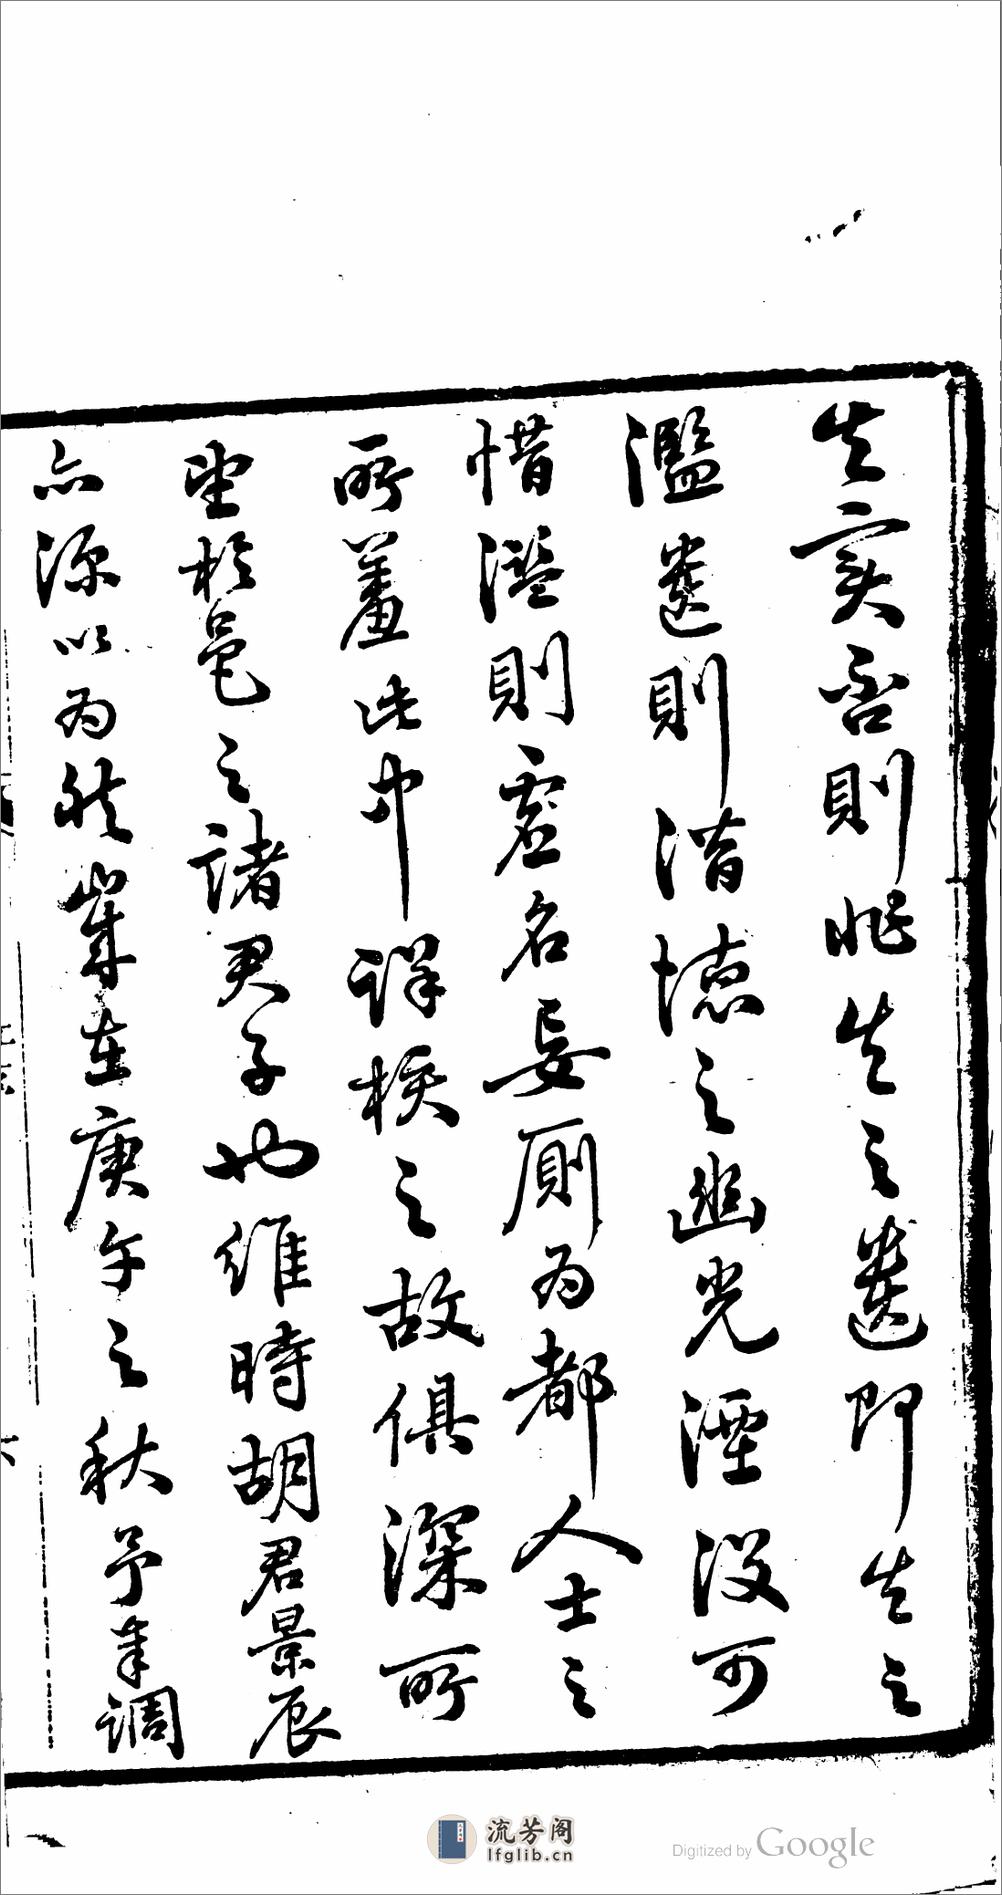 失實否則非失之遺即失之
濫遺則潛德之幽光湮沒可
惜濫則虛名妄廁為都人士之
所羞此中詳核之故俱深所
望於邑之諸君子也維時胡君景辰
亦深以為然歲在庚午之秋予奉調
流芳阁
lfglib.cn
Digitized by Google